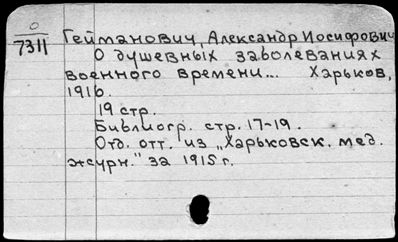 О
7311
Гейманович, Александр Иосифович
О душевных заболеваниях
военного времени... Харьков,
1916.
19 стр.
Библиогр. стр. 17-19.
Отд. отт. из „Харьковск. мед.
журн." за 1915 г.